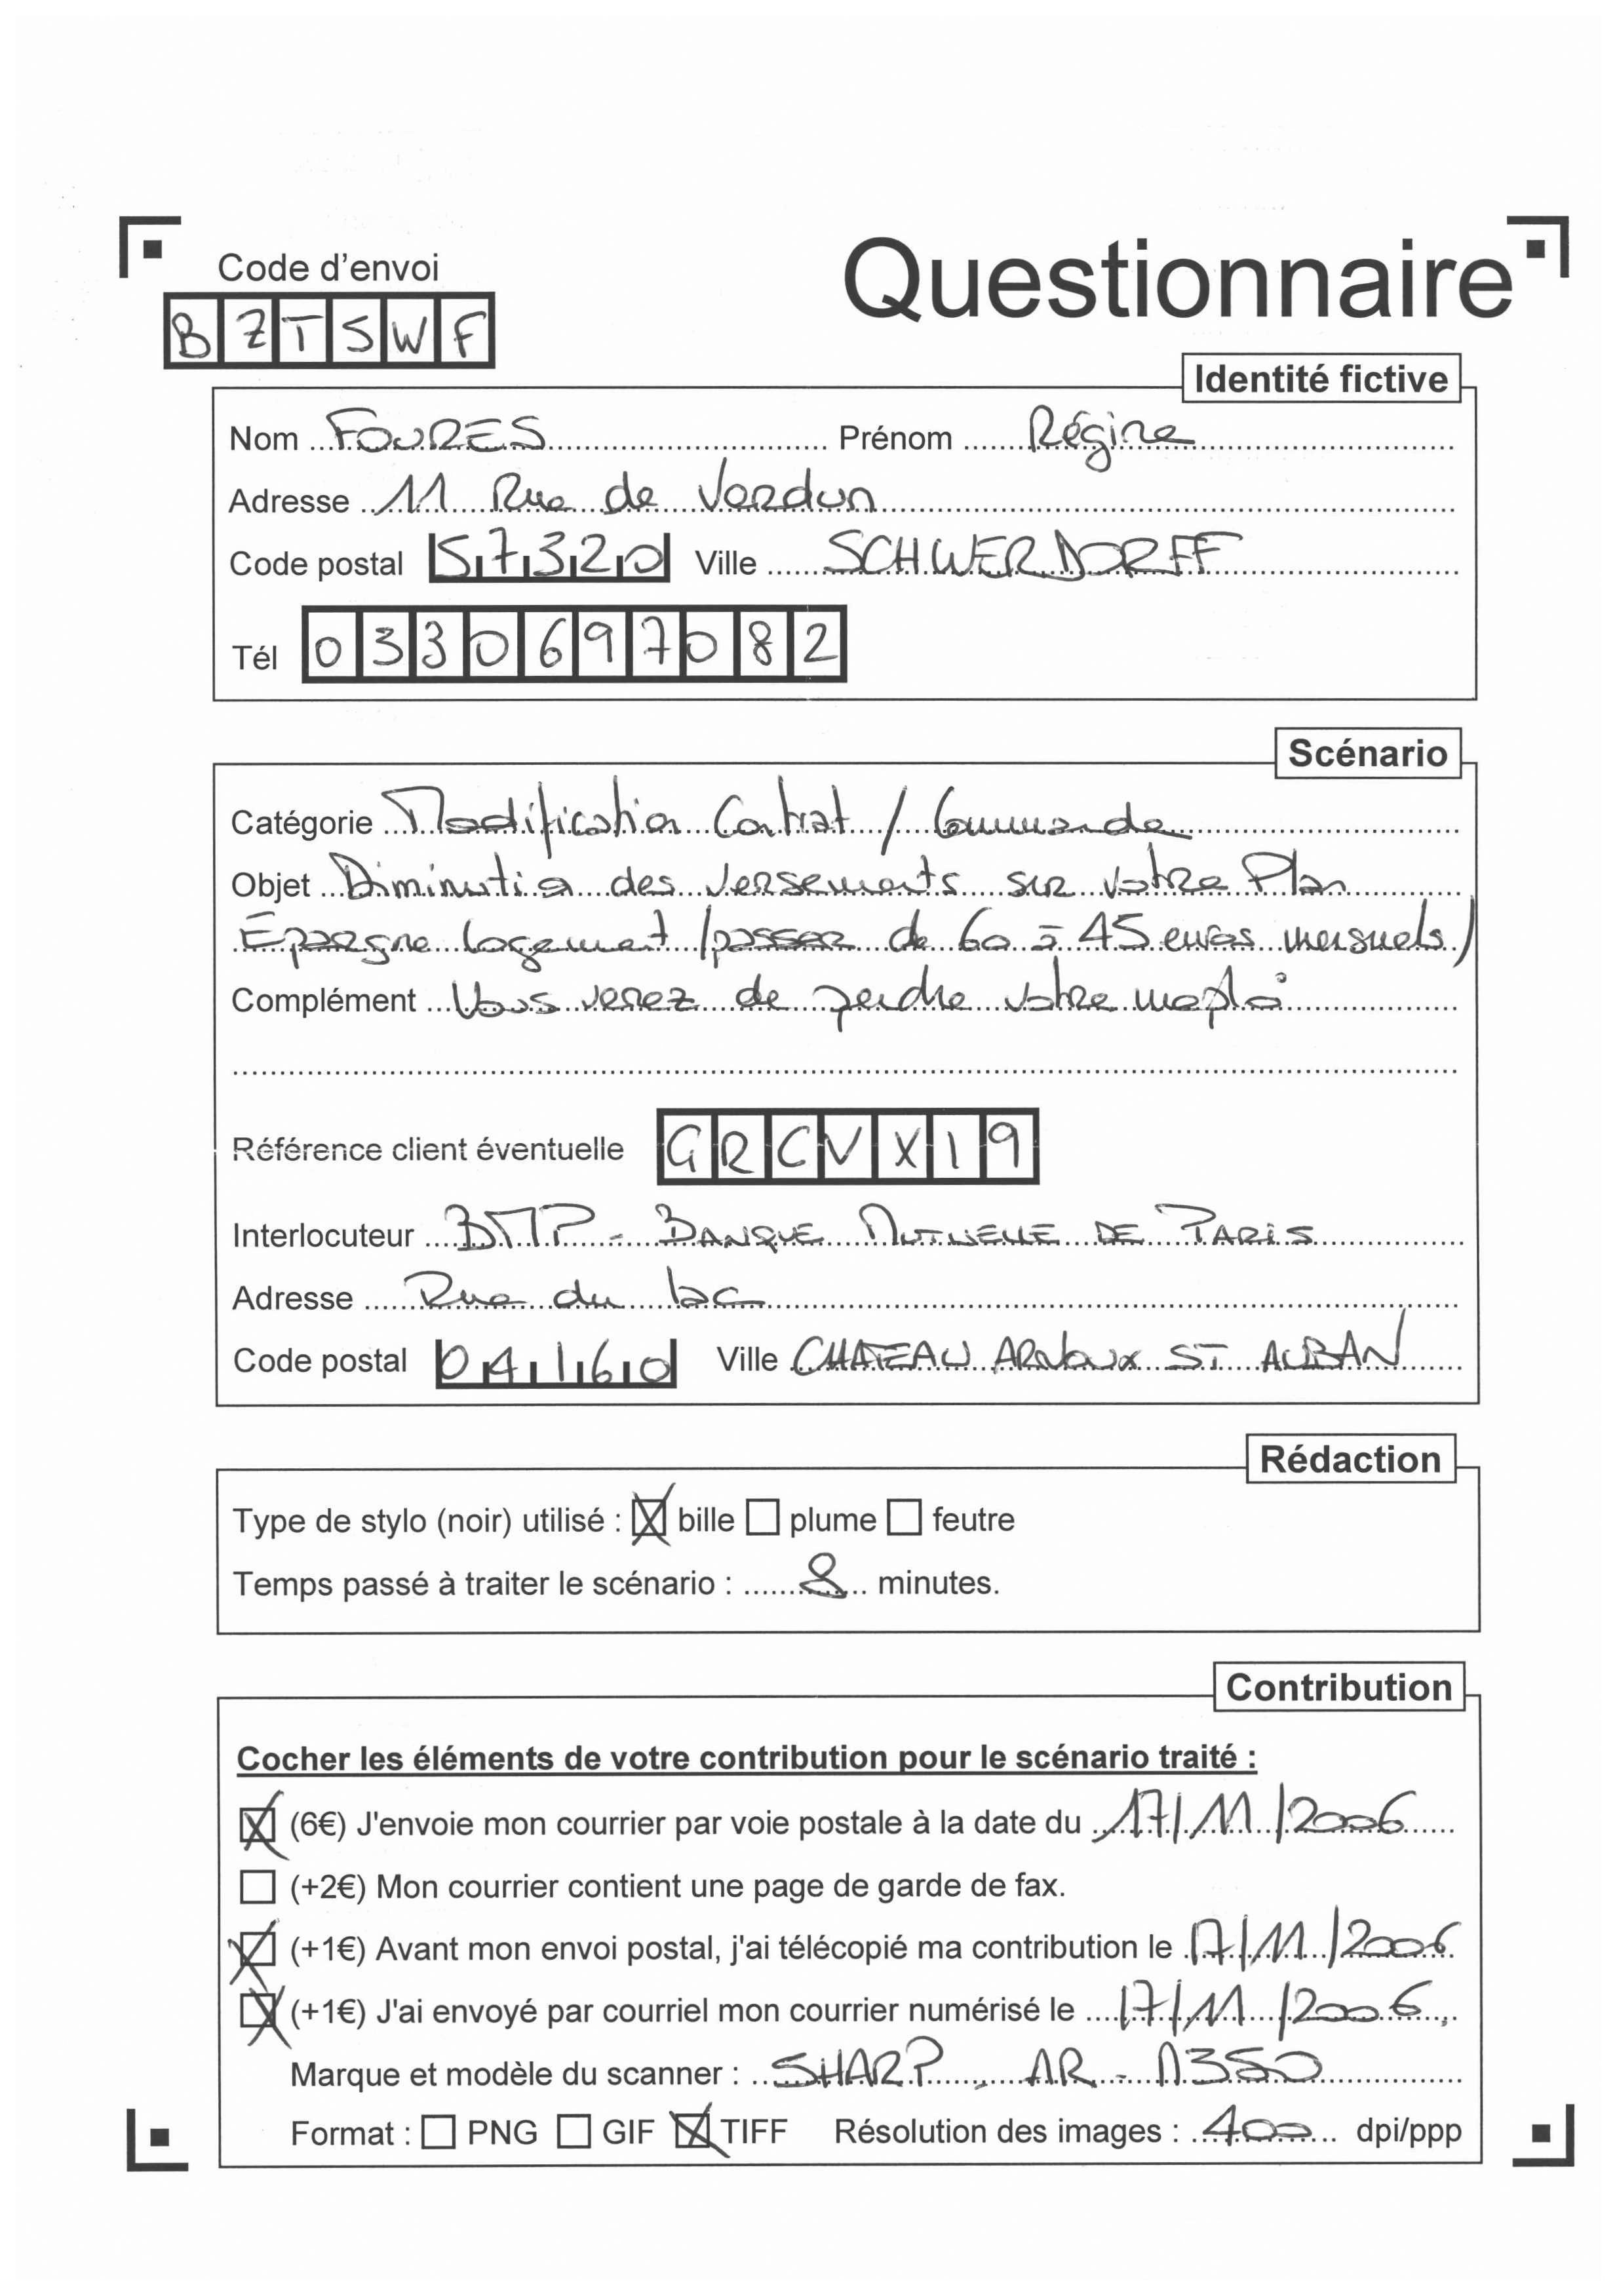 Questionnaire
Code d'envoi
BZTSWF
Identité fictive
Nom FOURES Prénom Régine
Adresse 11 Rue de Verdun
Code postal 57320 Ville SCHWERDORFF
Tél 0330697082
Scénario
Catégorie Modification Contrat / Commande
Objet Diminution des versements sur votre Plan
Épargne logement (passer de 60 à 45 euros mensuels)
Complément Vous venez de perdre votre
Référence client éventuelle GRCVX19
Interlocuteur BMP - BANQUE MUTUELLE DE PARIS
Adresse Rue du lac
Code postal 04160 Ville CHATEAU ARNoux ST AUBAN
Rédaction
Type de stylo (noir) utilisé : bille plume feutre
Temps passé à traiter le scénario : 8 minutes.
Contribution
Cocher les éléments de votre contribution pour le scénario traité :
(6€) J'envoie mon courrier par voie postale à la date du 17/11/2006
(+2€) Mon courrier contient une page de garde de fax.
(+1€) Avant mon envoi postal, j'ai télécopié ma contribution le 17/11/2006
(+1€) J'ai envoyé par courriel mon courrier numérisé le 17/11/2006
Marque et modèle du scanner : SHARP - AR - M350
Format : PNG GIF TIFF Résolution des images : 400 dpi/ppp